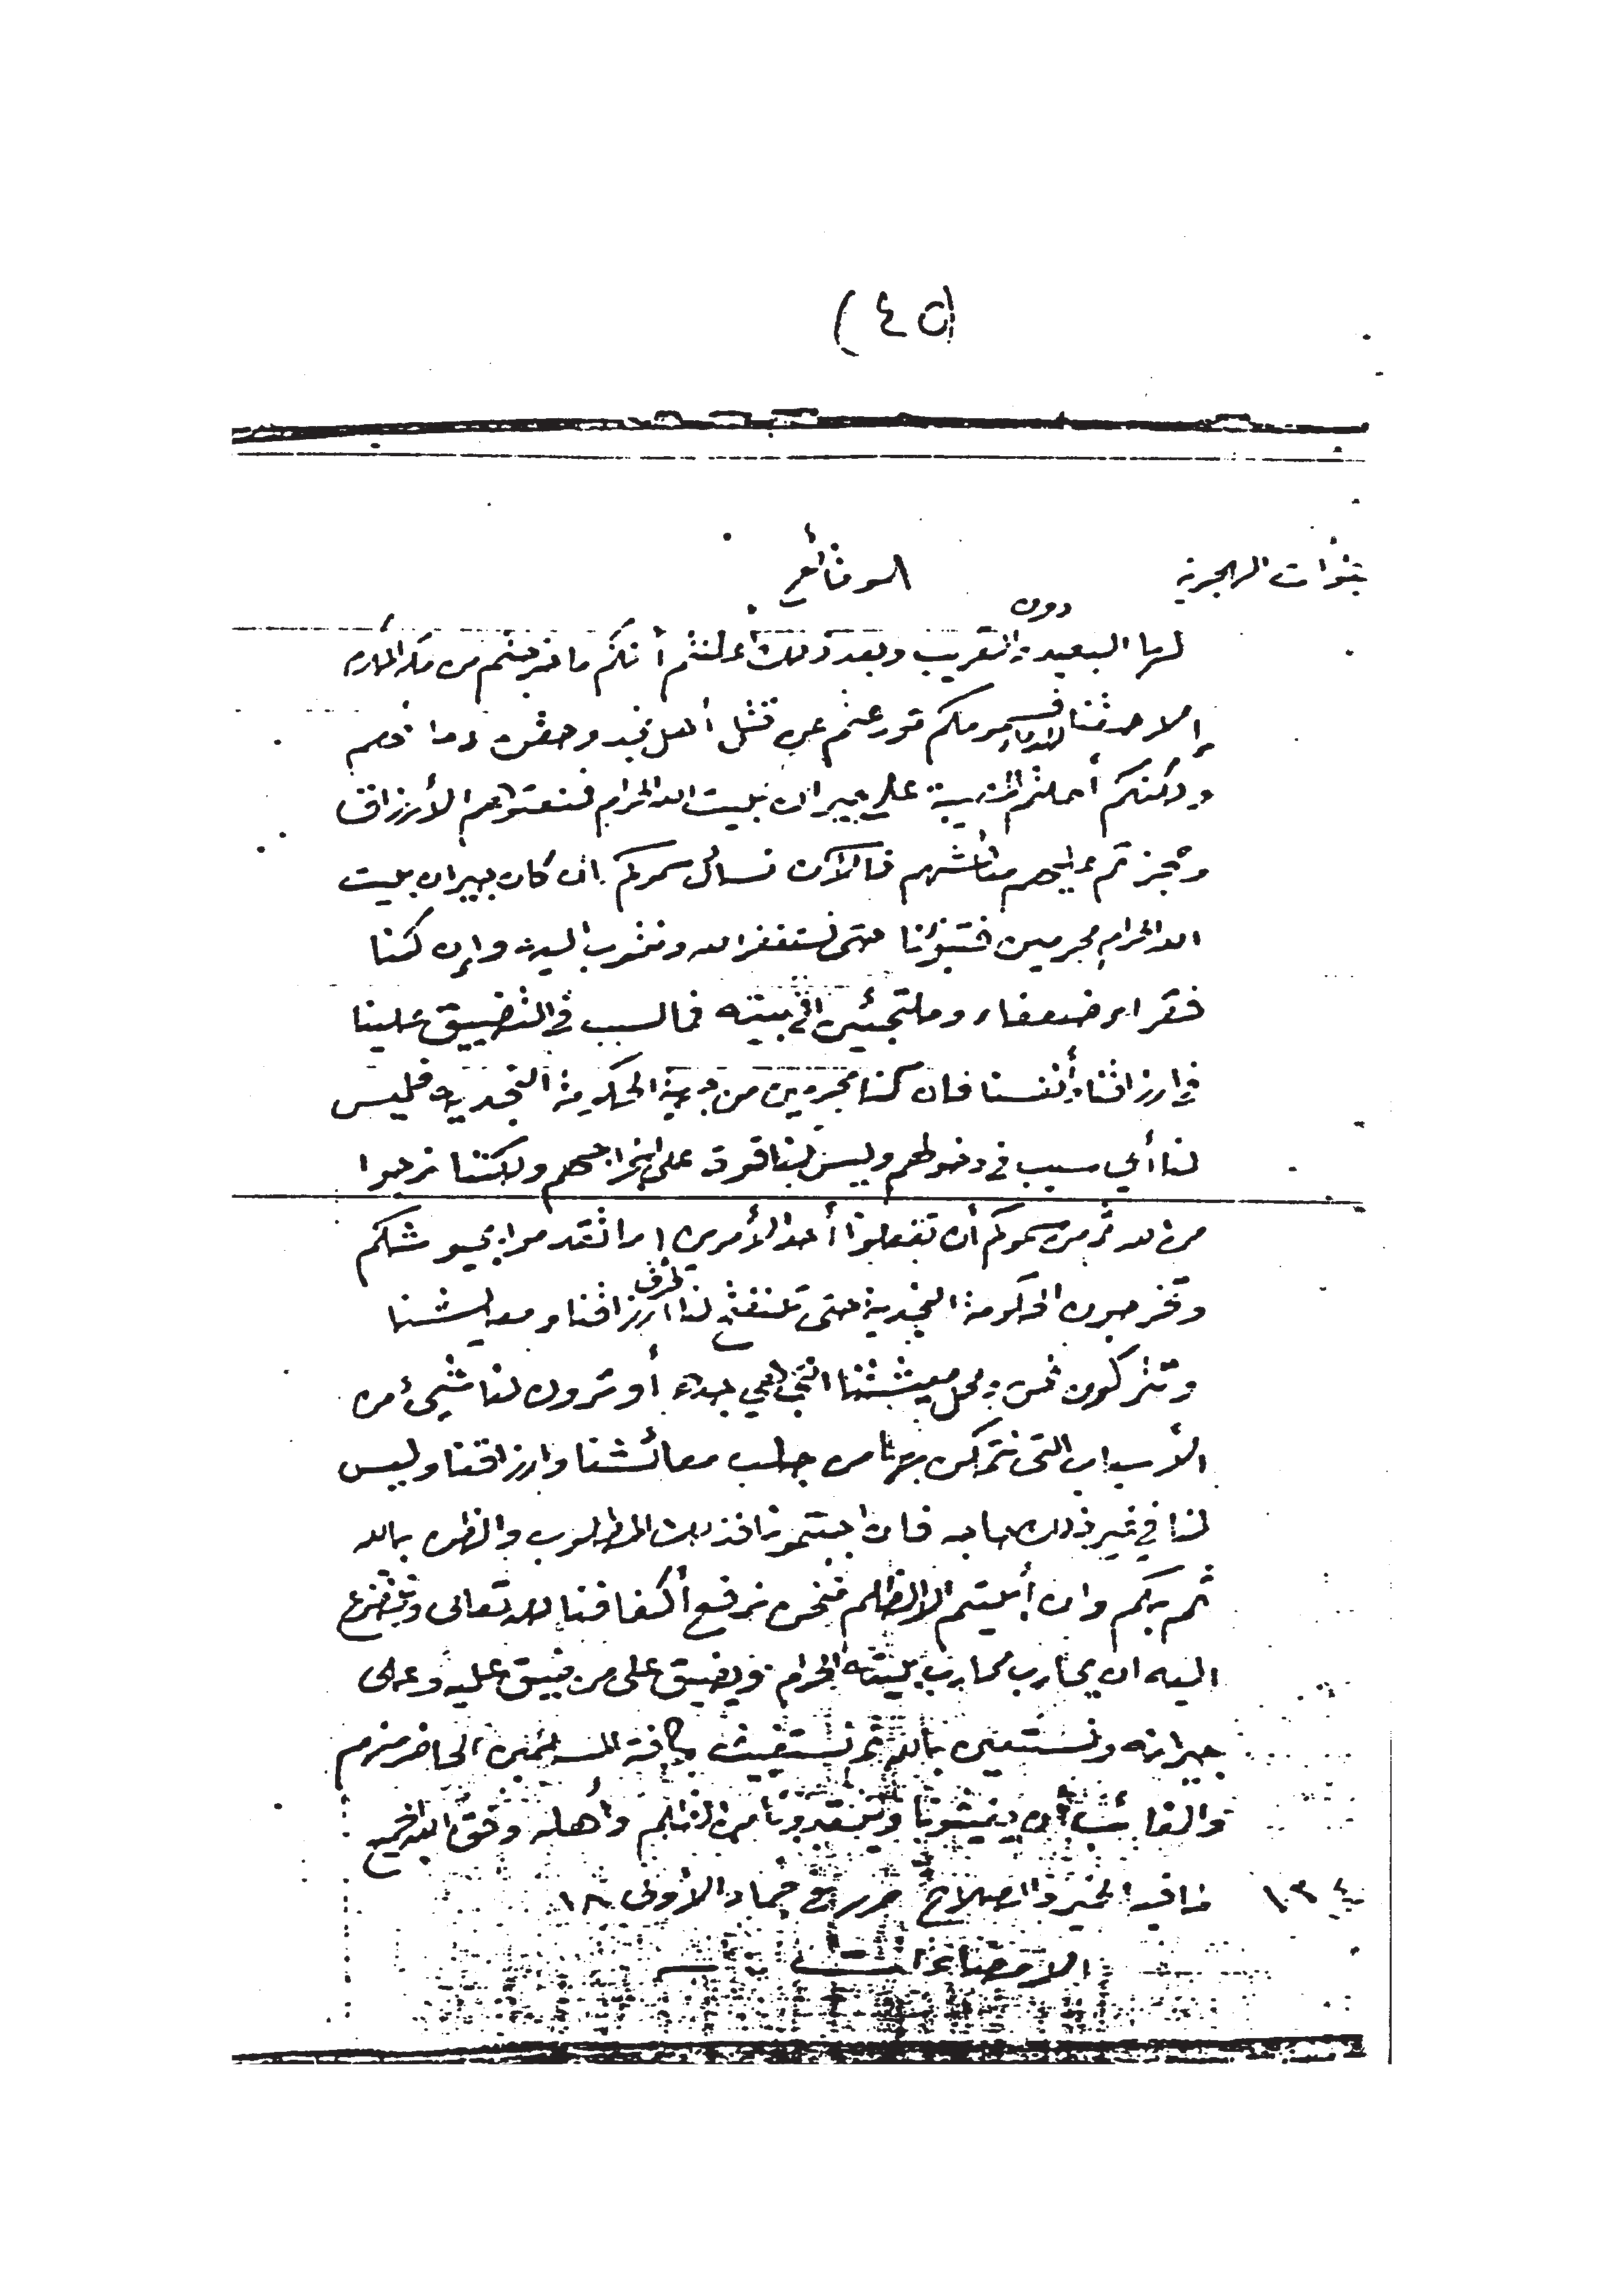 (٤٥)
سنوات الهجرية
الوقائع
دون
لها البعيد والقريب وبعد ذلك اعلنتم أنكم ما خرجتم من مكة المكرمة
إلا حقنا للدماء فسموكم تورعتم عن قتل أهل نجد وحقن دمائهم
ولكنكم أحللتم الأذية على جيران بيت الله الحرام فمنعتوهم الأرزاق
وحجزتم عليهم معائشهم فالآن نسأل سموكم ان كان جيران بيت
الله الحرام مجرمين فنبؤنا حتى نستغفر الله ونتوب اليه وإن كنا
فقراء ضعفاء وملتجئين الى بيته فما السبب في التضييق علينا
في ارزاقنا وأنفسنا فان كنا مجرمين من جهة الحكومة النجدية فليس
لنا أي سبب في دخولهم وليس لنا قوة على اخراجهم ولكننا نرجوا
من الله ثم من سموكم أن تفعلوا أحد الأمرين اما تتقدموا بجيوشكم
وتخرجون الحكومة النجدية حتى تنفتح لنا طرق ارزاقنا ومعايشنا
وتتركون محل معيشتنا التي هي جدة أو ترون لنا شيئ من
الأسباب التى نتمكن بها من جلب معائشنا وارزاقنا وليس
لنا في غير ذلك حاجه فان اجبتمونا فذلك المطلوب والظن بالله
ثم بكم وان أبيتم الا الظلم فنحن نرفع أكفافنا لله تعالى ونتضرع
اليه ان يحارب محارب بيته الحرام ويضيق على من ضيق عليه وعلى
جيرانه ونستعين بالله ثم نستغيث بكافة المسلمين الحاضر منهم
والغائب أن يغيثونا وينقذونا من الظلم وأهله وفق الله الجميع
لما فيه الخير والصلاح حرر في جماد الأولى ١٨
١٣٤
الامضاءات